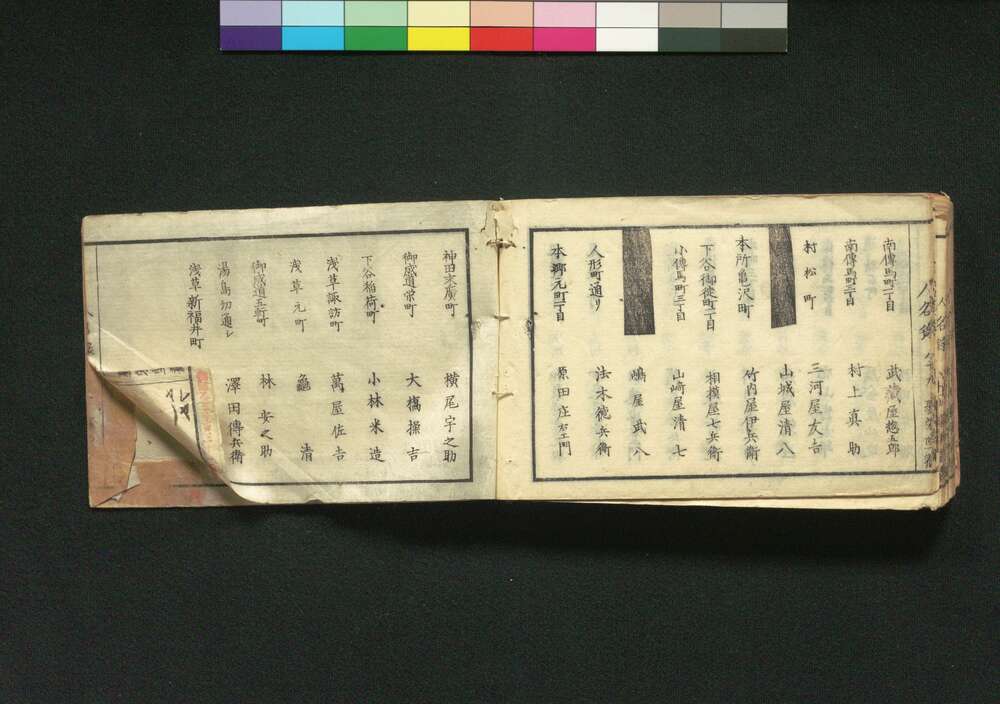 南傳馬町一丁目 武蔵屋總五郎
南傳馬町三丁目 村上真助
村松町 三河屋友吉
山城屋清八
本所亀沢町 竹内屋伊兵衛
下谷御徒町一丁目 相模屋七兵衛
小傳馬町三丁目 山崎屋清七
嶋屋武八
人形町通り 法木徳兵衛
本郷元町一丁目 原田庄右エ門
神田末廣町 横尾宇之助
御成道栄町 大橋操吉
下谷稲荷町 小林米造
浅草諏訪町 萬屋佐吉
浅草元町 龜清
御成道五軒町 林安之助
湯島切通し
浅草新福井町 澤田傳兵衛